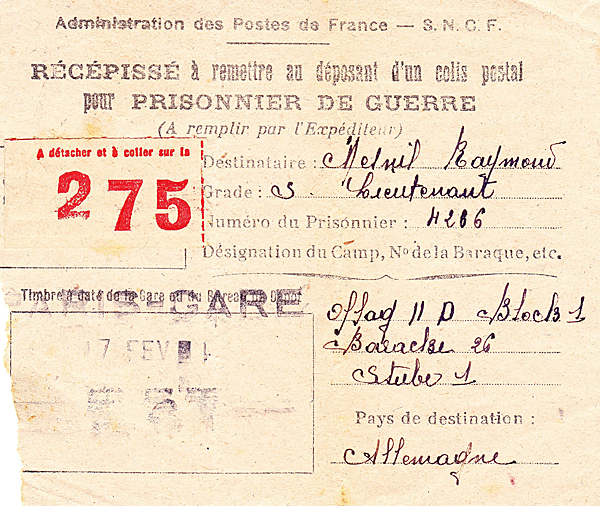 Administration des Postes de France — S. N. C. F.
RÉCÉPISSÉ à remettre au déposant d'un colis postal
pour PRISONNIER DE GUERRE
(A remplir par l'Expéditeur)
A détacher et à coller sur la
275
Destinataire : Mesnil Raymond
Grade : S. Lieutenant
Numéro du Prisonnier : 4286
Désignation du Camp, No de la Baraque, etc.
Timbre à date de la Gare ou du Bureau de Dépôt
PARIS-GARE
7 FEV
EST
Oflag II D Block 1
Baracke 26
Stube 1
Pays de destination :
Allemagne